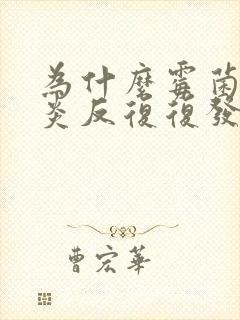 為什麼霉菌
炎反復復發
曹宏華